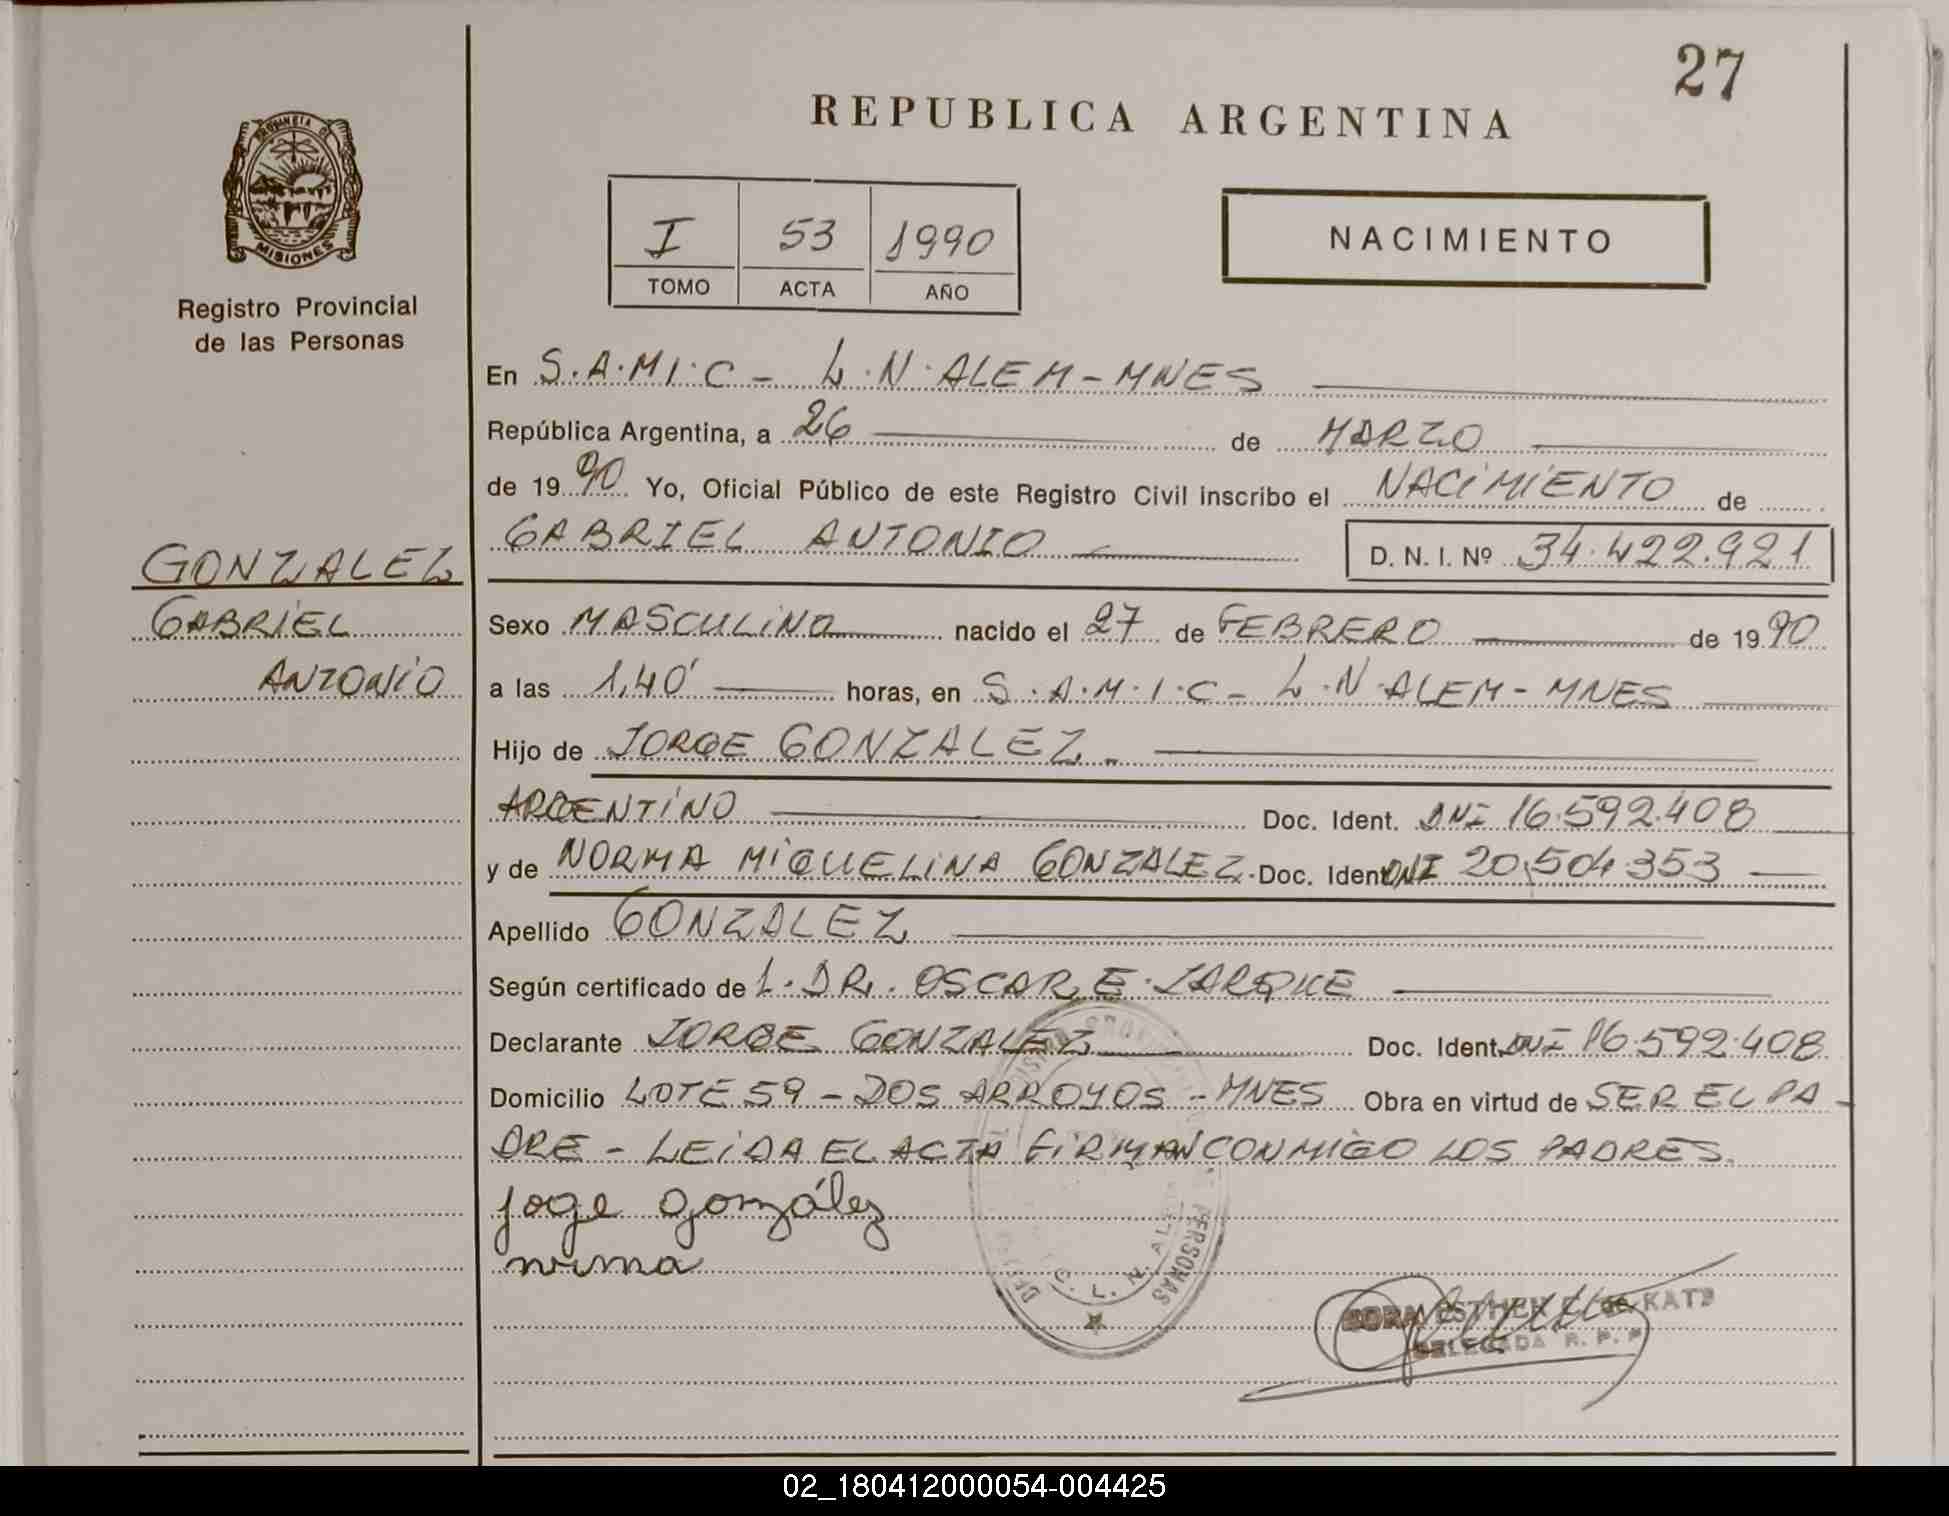 27
REPUBLICA ARGENTINA
PROVINCIA DE
MISIONES
Registro Provincial
de las Personas
I 53 1990
TOMO ACTA AÑO
NACIMIENTO
En S.A.M.I.C - L.N. ALEM - MNES
República Argentina, a 26 de MARZO
de 1990 Yo, Oficial Público de este Registro Civil inscribo el NACIMIENTO de
GABRIEL ANTONIO D. N. I. Nº 34.422.921
GONZALEZ
GABRIEL
ANTONIO
Sexo MASCULINO nacido el 27 de FEBRERO de 1990
a las 1,40' horas, en S.A.M.I.C - L.N. ALEM - MNES
Hijo de JORGE GONZALEZ.
ARGENTINO Doc. Ident. DNI 16.592.408
y de NORMA MIQUELINA GONZALEZ. Doc. Ident. DNI 20.504.353
Apellido GONZALEZ
Según certificado de L. DR. OSCAR E.
Declarante JORGE GONZALEZ Doc. Ident. DNI 16.592.408
Domicilio LOTE 59 - DOS ARROYOS - MNES Obra en virtud de SER EL PA-
DRE - LEIDA EL ACTA FIRMAN CONMIGO LOS PADRES.
joge gonzález
nrma
PERSONAS
L. N. ALEM
ESTHER de KATZ
DELEGADA R. P. P.
02_180412000054-004425